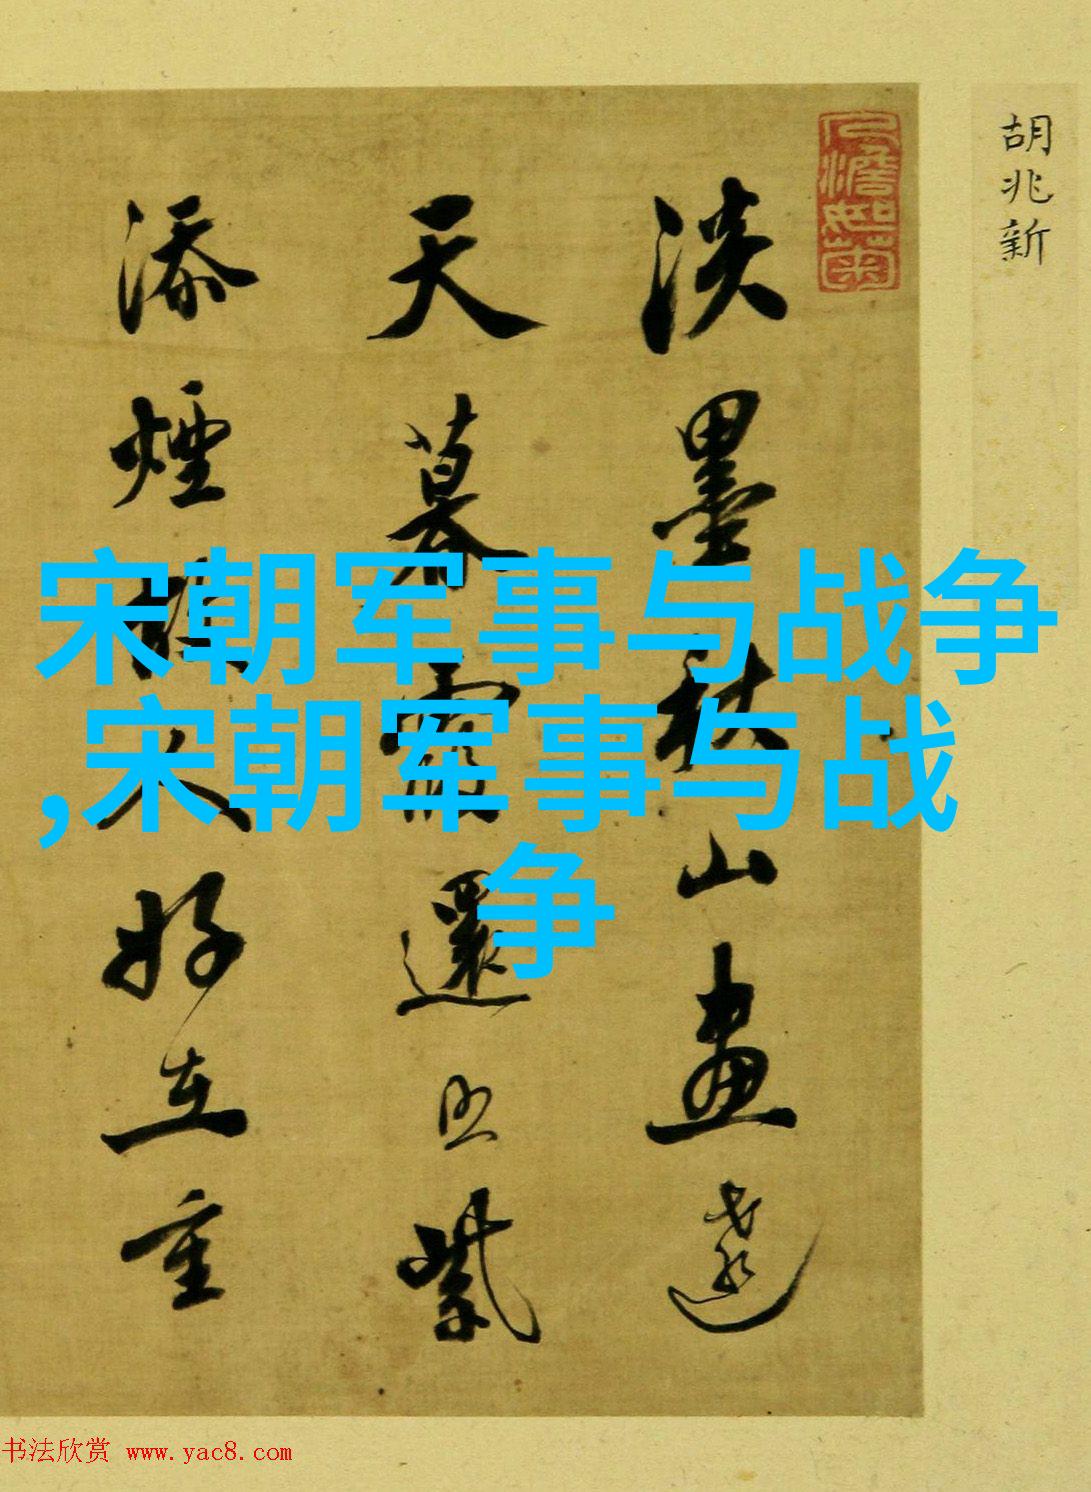 胡兆新
人澹如菊
淡墨秋山畫遠
天暮霞還照紫
添煙故人好在重
宋朝军事与战争
,宋朝军事与战
争
书法欣赏 www.yac8.com